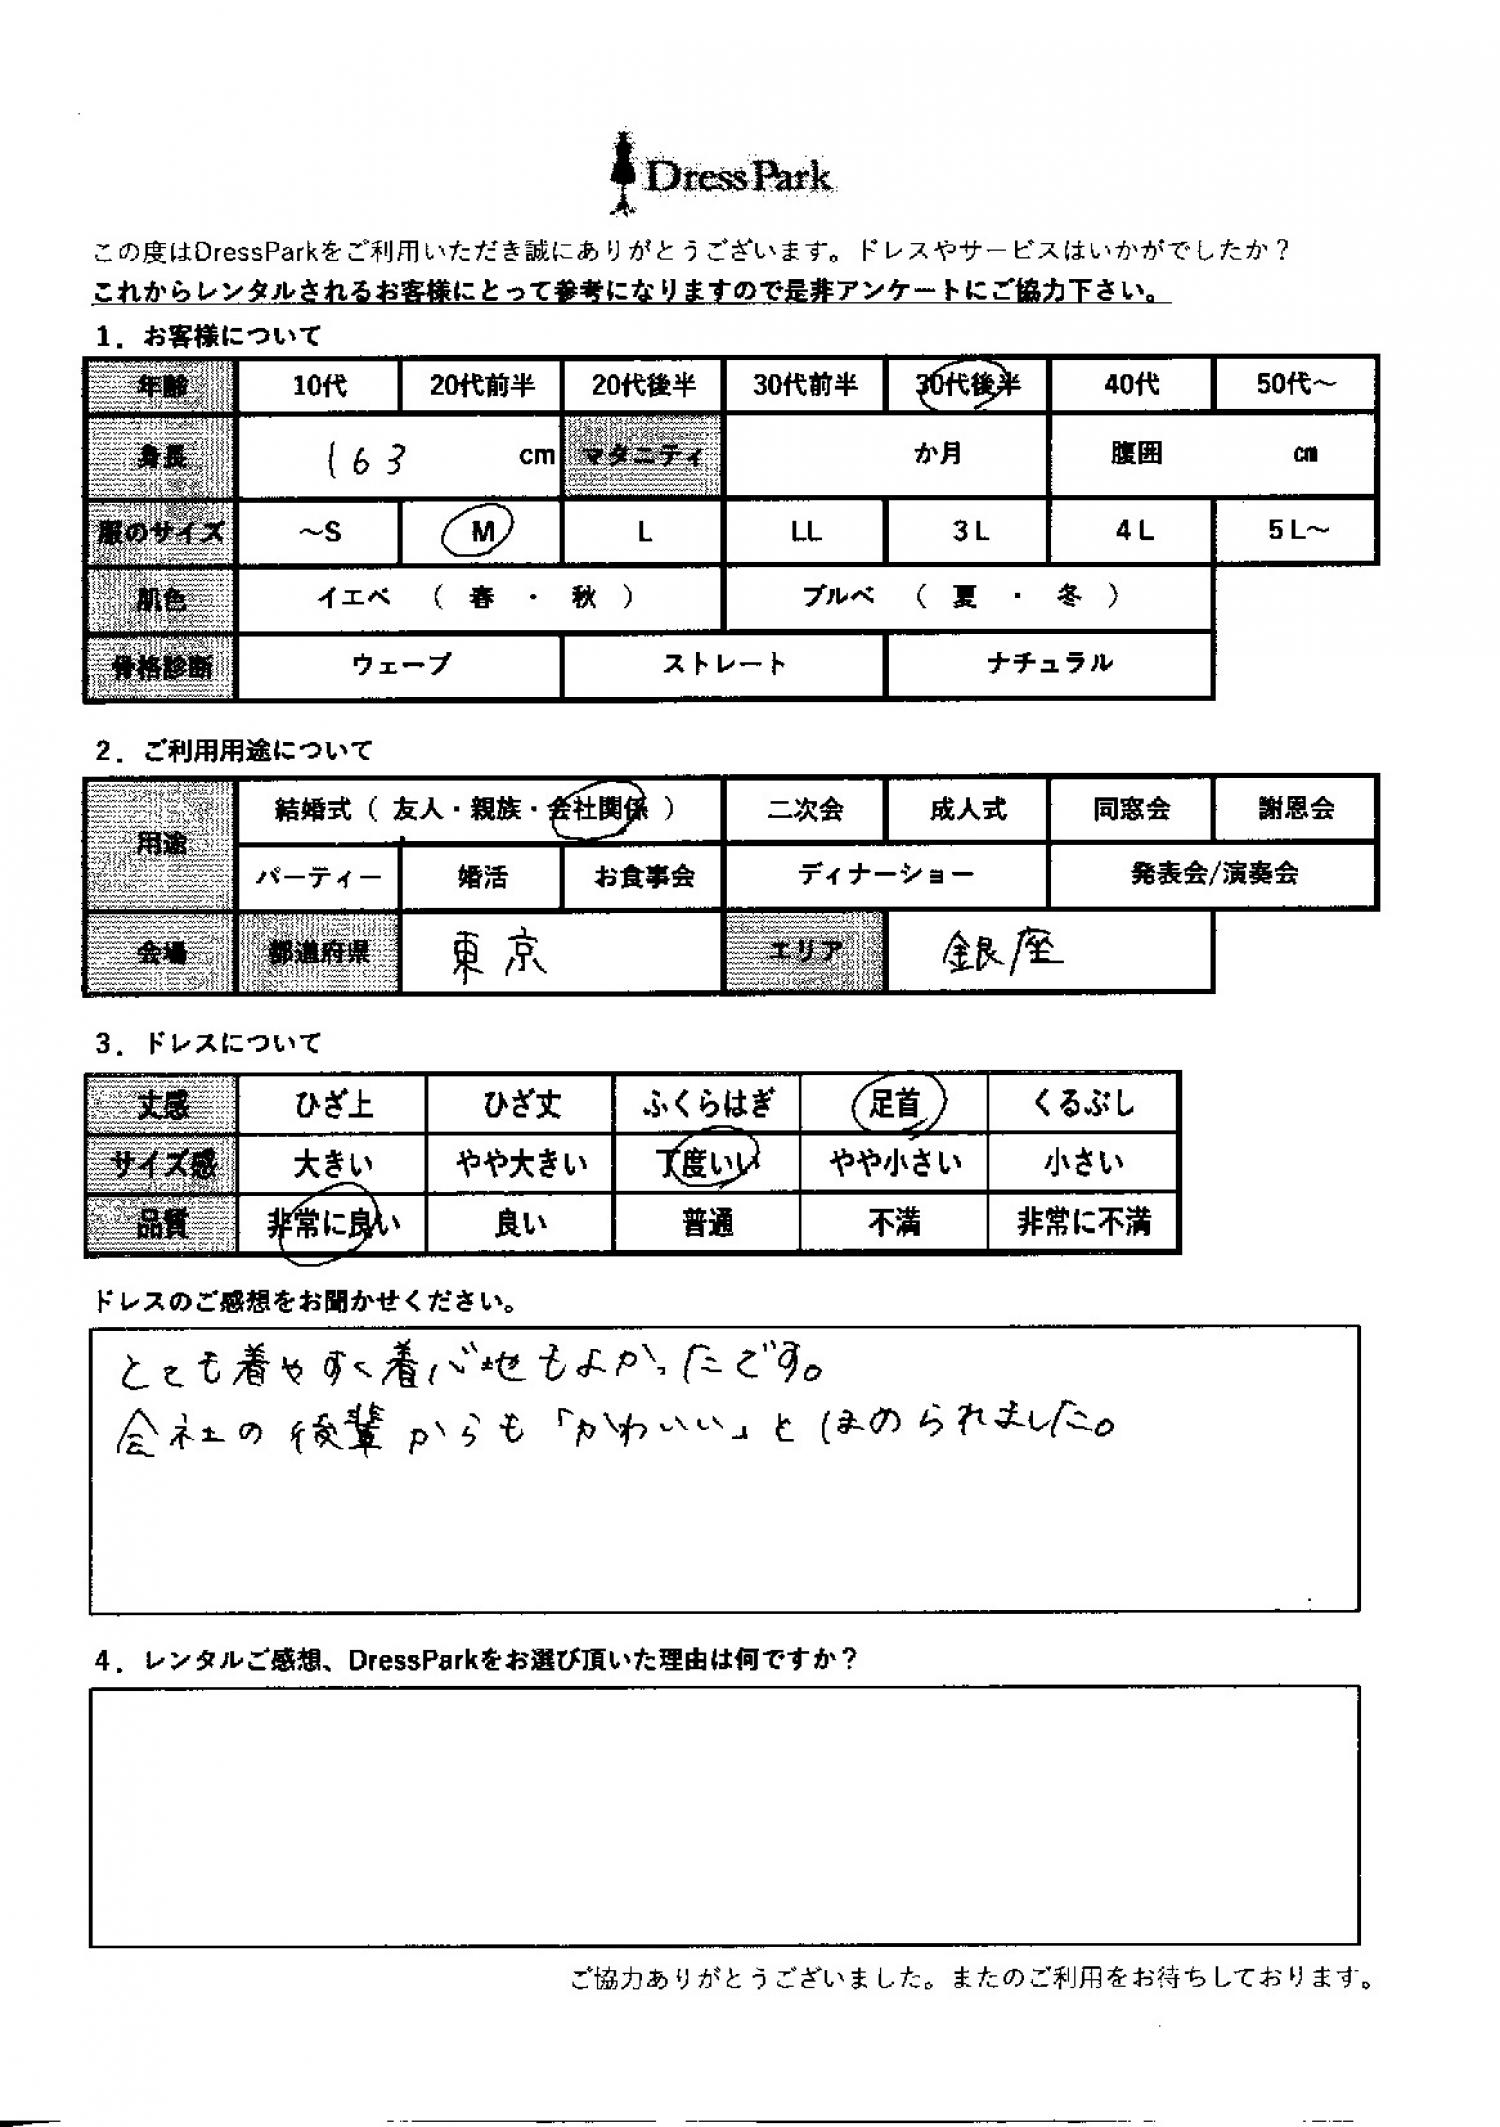 DressPark
この度はDressParkをご利用いただき誠にありがとうございます。ドレスやサービスはいかがでしたか？
これからレンタルされるお客様にとって参考になりますので是非アンケートにご協力下さい。
1．お客様について
年齢 10代 20代前半 20代後半 30代前半 30代後半 40代 50代～
身長 163 cm マタニティ か月 腹囲 cm
服のサイズ ～S M L LL 3L 4L 5L～
肌色 イエベ （ 春 ・ 秋 ） ブルベ （ 夏 ・ 冬 ）
骨格診断 ウェーブ ストレート ナチュラル
2．ご利用用途について
用途 結婚式（ 友人・親族・会社関係 ） 二次会 成人式 同窓会 謝恩会
パーティー 婚活 お食事会 ディナーショー 発表会/演奏会
会場 都道府県 東京 エリア 銀座
3．ドレスについて
丈感 ひざ上 ひざ丈 ふくらはぎ 足首 くるぶし
サイズ感 大きい やや大きい 丁度いい やや小さい 小さい
品質 非常に良い 良い 普通 不満 非常に不満
ドレスのご感想をお聞かせください。
とても着やすく着心地もよかったです。
会社の後輩からも「かわいい」とほめられました。
4．レンタルご感想、DressParkをお選び頂いた理由は何ですか？
ご協力ありがとうございました。またのご利用をお待ちしております。